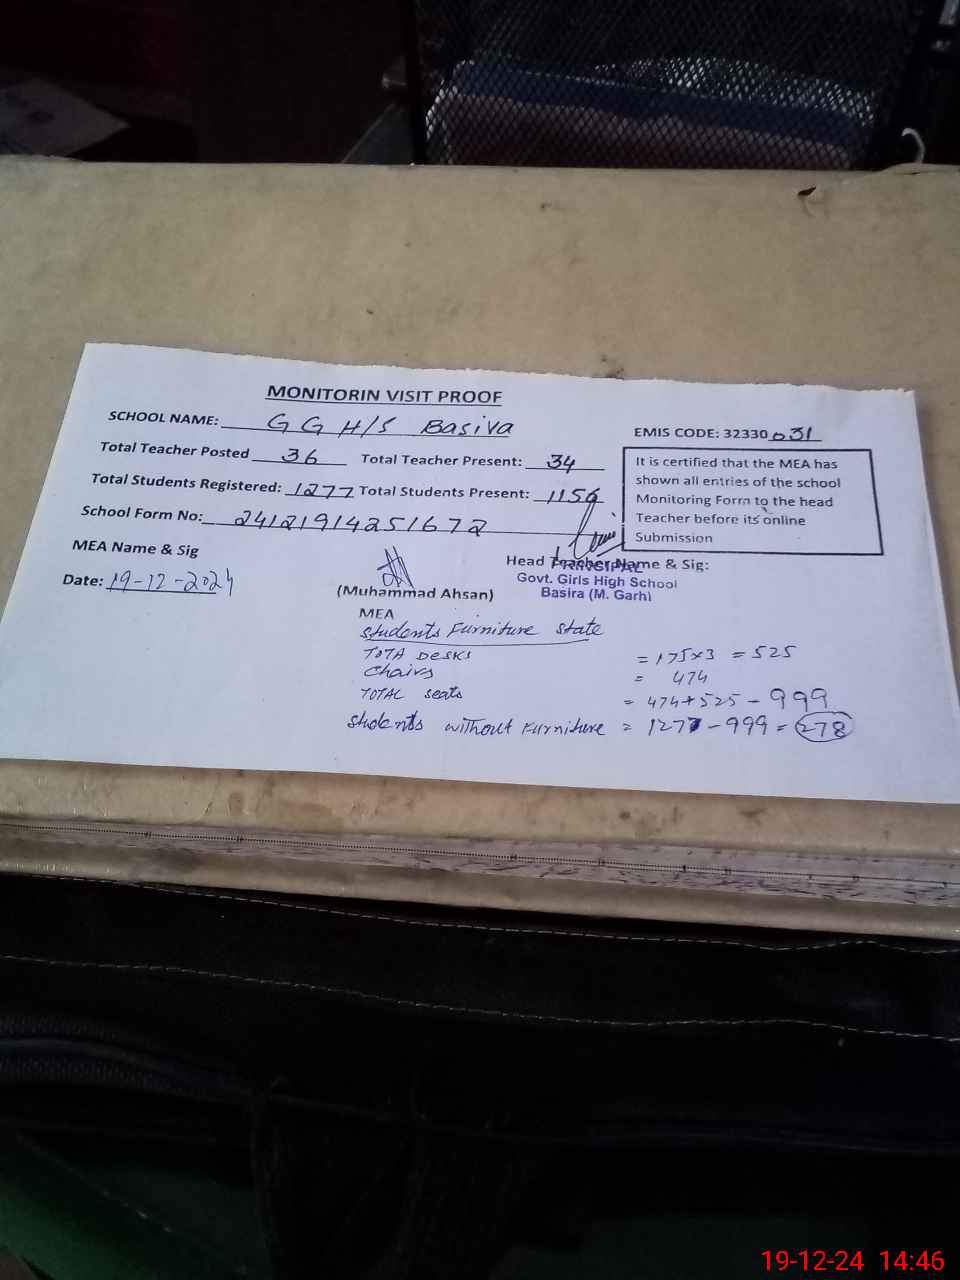 MONITORIN VISIT PROOF
SCHOOL NAME: GGH/S Basira
EMIS CODE: 32330031
Total Teacher Posted 36 Total Teacher Present: 34
Total Students Registered: 1277 Total Students Present: 1156
School Form No: 24121914251672
It is certified that the MEA has
shown all entries of the school
Monitoring Form to the head
Teacher before its online
Submission
MEA Name & Sig
Head Teacher Name & Sig:
PRINCIPAL
Govt. Girls High School
Basira (M. Garh)
Date: 19-12-2024
(Muhammad Ahsan)
MEA
Students Furniture State
TOTA DESKS = 175×3 = 525
Chairs = 474
TOTAL seats = 474+525 - 999
Students without Furniture = 1277-999 = 278
19-12-24 14:46